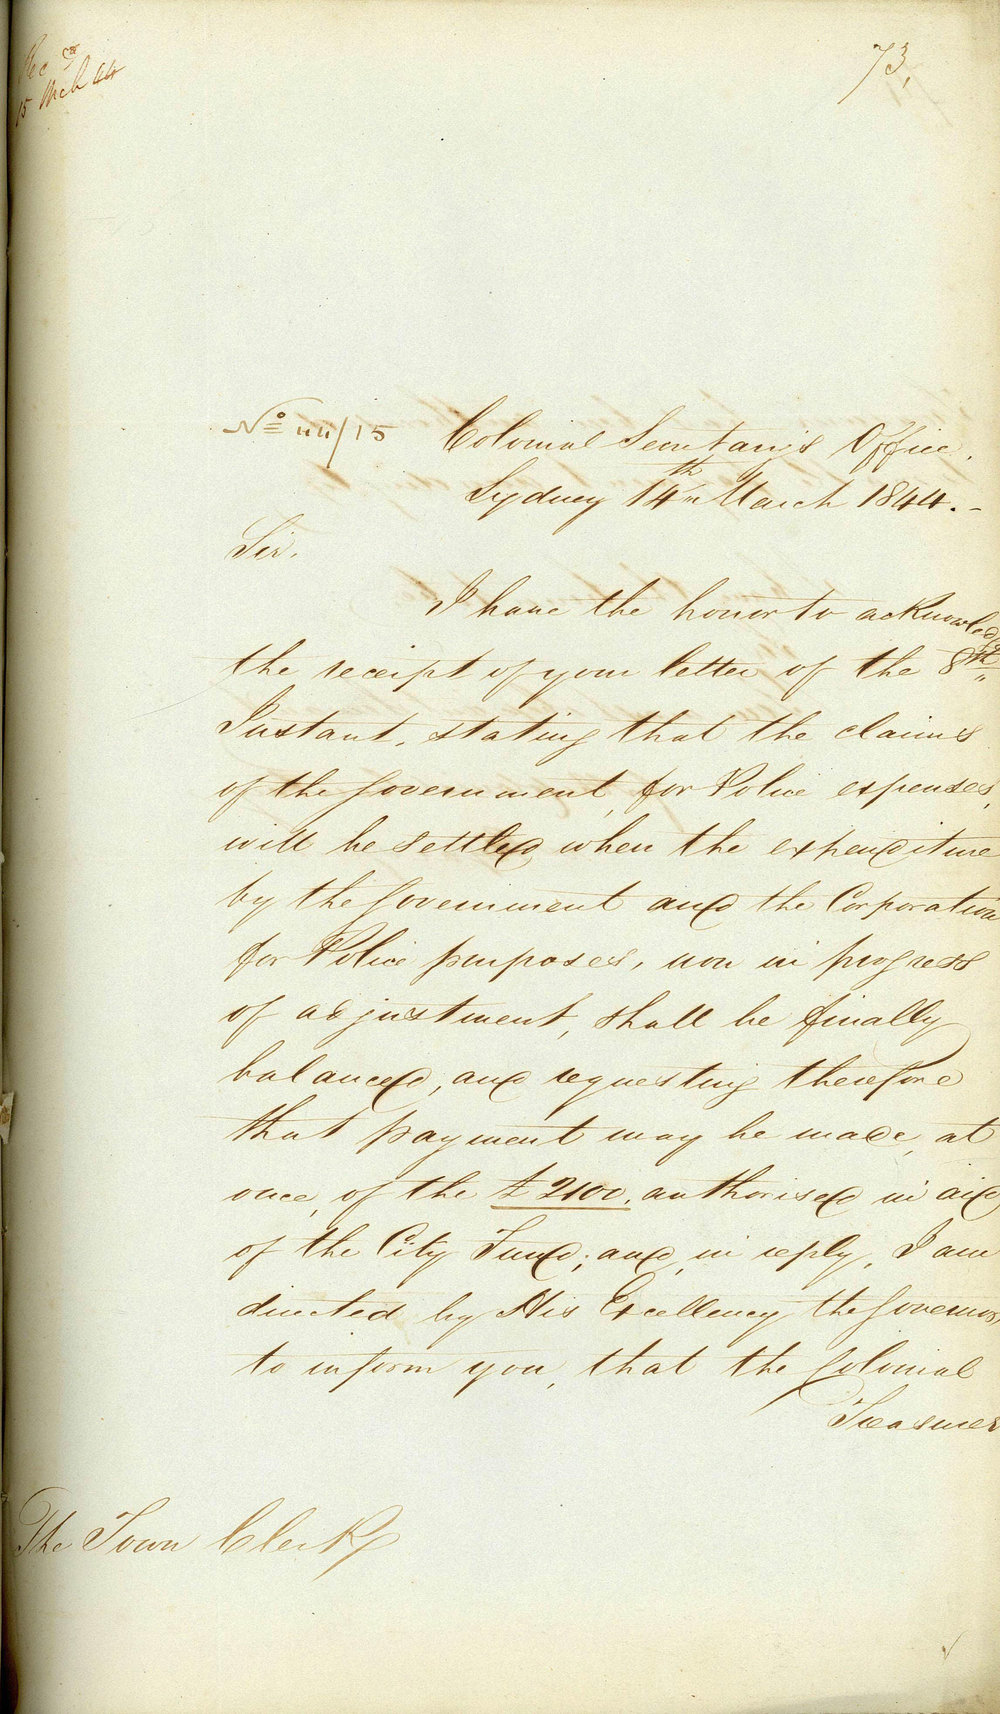 Rec^d
15 Mch 44
73,
No 44/15 Colonial Secretary's Office.
Sydney 14th March 1844.-
Sir.
I have the honor to acknowledge
the receipt of your letter of the 8th
Instant, stating that the claims
of the Government, for Police expenses,
will be settled, when the expenditure
by the Government and the Corporation
for Police purposes, now in progress
of adjustment, shall be finally
balanced, and requesting therefore
that payment may be made, at
once, of the £2100, authorised in aid
of the City Fund; and, in reply, I am
directed by His Excellency the Governor,
to inform you, that the Colonial
Treasurer
The Town Clerk